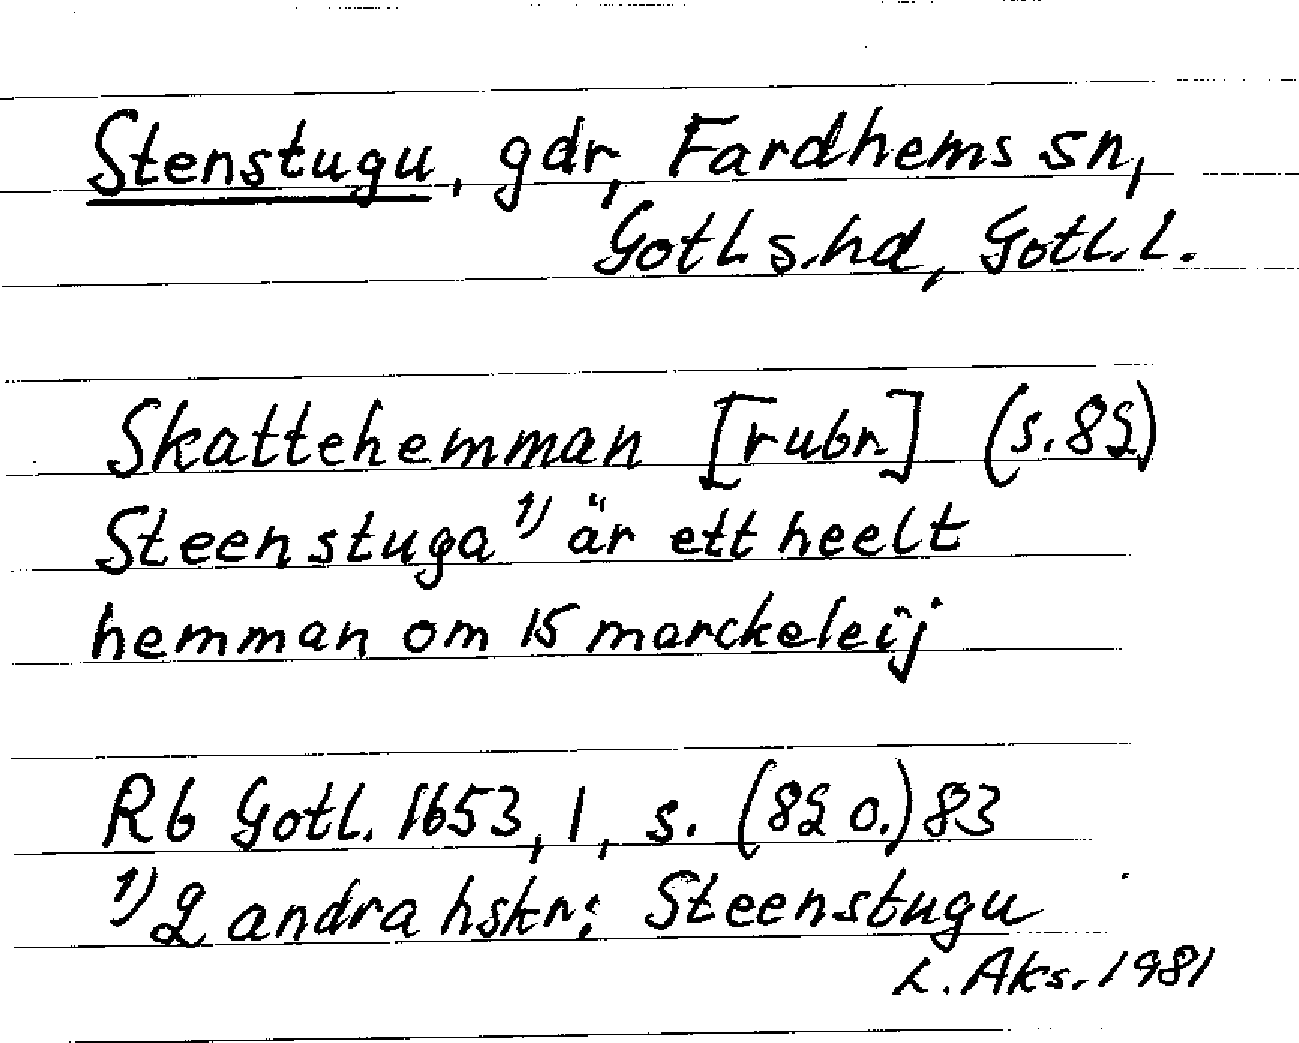 Stenstugu, gdr, Fardhems sn,
Gotl s.hd, Gotl.l.
Skattehemman [rubr] (s.82)
Steenstuga 1) är ett heelt
hemman om 15 marckeleij
Rb Gotl. 1653, 1, s. (82 o.) 83
1) 2 andra hskr: Steenstugu
L. Aks. 1981